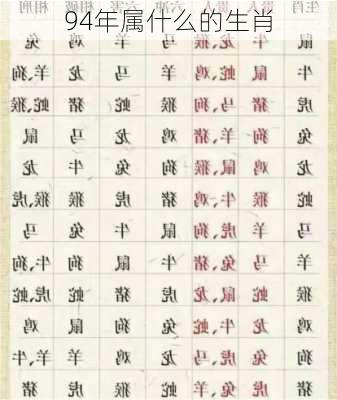 94年属什么的生肖
生肖 六冲 相破 相刑
鼠 牛 龙、猴 马 羊 鸡 兔
牛 鼠 蛇、鸡 羊 马 龙 羊、狗
虎 猪 马、狗 猴 蛇 猪 蛇、猴
兔 狗 羊、猪 鸡 龙 马 鼠
龙 鸡 鼠、猴 狗 兔 牛 龙
蛇 猴 牛、鸡 猪 虎 猴 猴、虎
马 羊 虎、狗 鼠 牛 兔 马
羊 马 兔、猪 牛 鼠 狗 牛、狗
猴 蛇 鼠、龙 虎 猪 蛇 虎、蛇
鸡 龙 牛、蛇 兔 狗 鼠 鸡
狗 兔 虎、马 龙 鸡 羊 羊、牛
猪 虎 兔、羊 蛇 猴 虎 猪